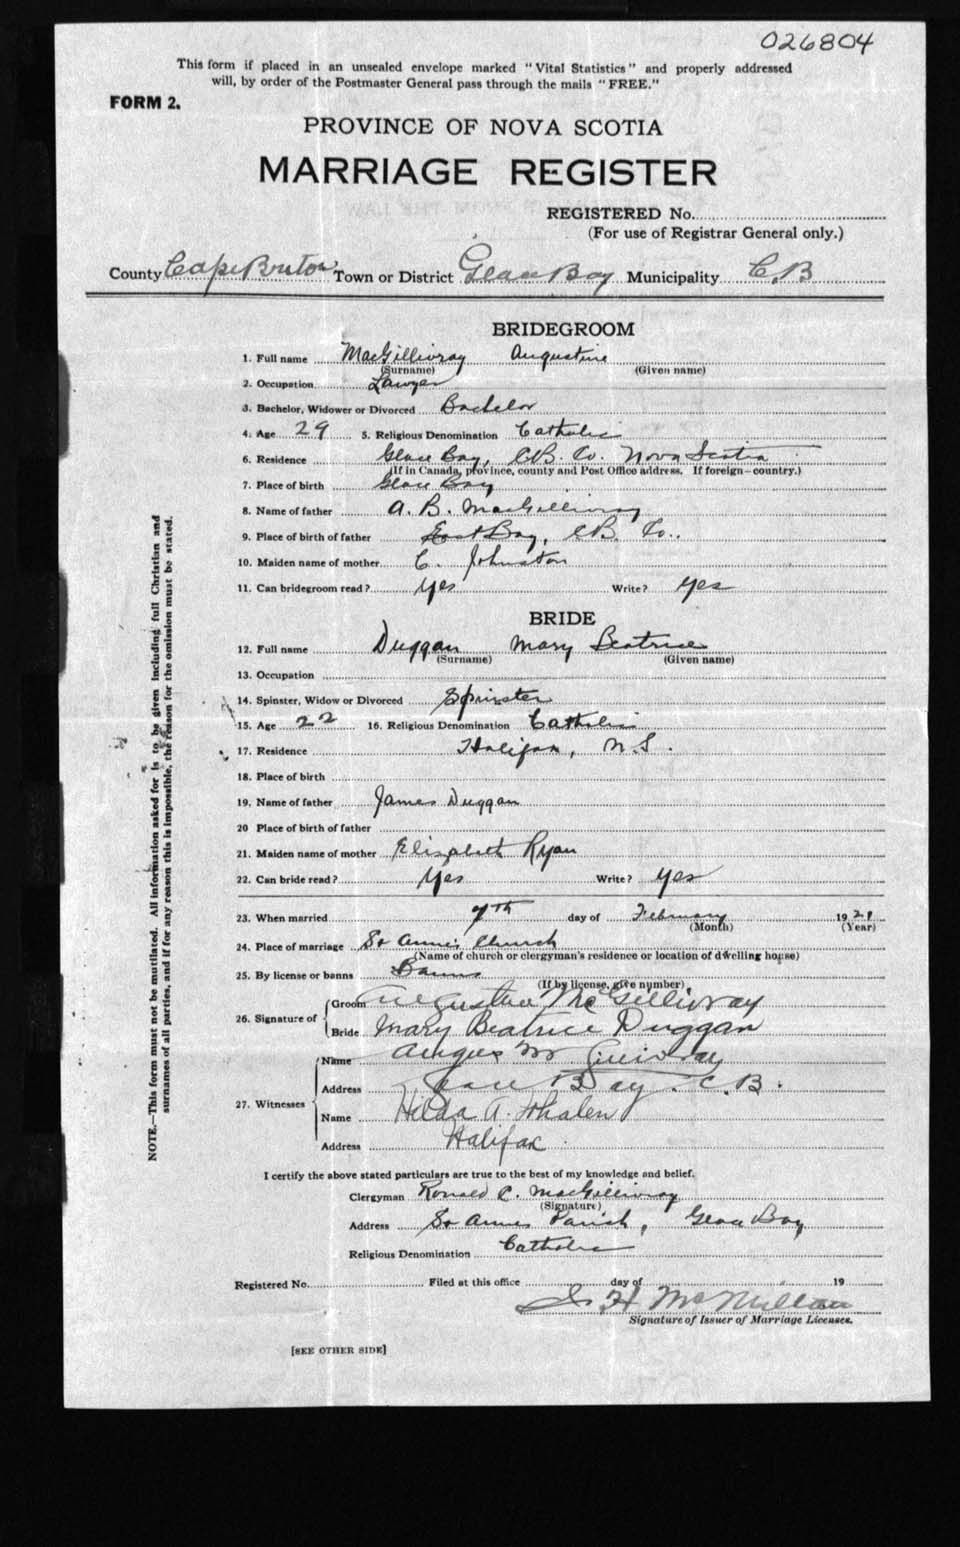 026804
This form if placed in an unsealed envelope marked "Vital Statistics" and properly addressed
will, by order of the Postmaster General pass through the mails "FREE."
FORM 2.
PROVINCE OF NOVA SCOTIA
MARRIAGE REGISTER
REGISTERED No.
(For use of Registrar General only.)
County Cape Breton Town or District Glace Bay Municipality C.B
BRIDEGROOM
1. Full name MacGillivray Augustine
(Surname) (Given name)
2. Occupation Lawyer
3. Bachelor, Widower or Divorced Bachelor
4. Age 29 5. Religious Denomination Catholic
6. Residence Glace Bay, C.B. Co. Nova Scotia
(If in Canada, province, county and Post Office address. If foreign—country.)
7. Place of birth Glace Bay
8. Name of father A. B. MacGillivray
9. Place of birth of father East Bay, C.B. Co.
10. Maiden name of mother C. Johnston
11. Can bridegroom read? Yes Write? Yes
BRIDE
12. Full name Duggan Mary Beatrice
(Surname) (Given name)
13. Occupation
14. Spinster, Widow or Divorced Spinster
15. Age 22 16. Religious Denomination Catholic
17. Residence Halifax, N.S.
18. Place of birth
19. Name of father James Duggan
20 Place of birth of father
21. Maiden name of mother Elizabeth Ryan
22. Can bride read? Yes Write? Yes
23. When married 7th day of February 1921
(Month) (Year)
24. Place of marriage St Anne's Church
(Name of church or clergyman's residence or location of dwelling house)
25. By license or banns Banns
(If by license, give number)
26. Signature of Groom Augustine McGillivray
Bride Mary Beatrice Duggan
27. Witnesses Name Angus
Address Glace Bay. C.B.
Name Hilda A. Whalen
Address Halifax
I certify the above stated particulars are true to the best of my knowledge and belief.
Clergyman Ronald C. MacGillivray
(Signature)
Address St Annes Parish, Glace Bay
Religious Denomination Catholic
Registered No. Filed at this office day of 19
H McMillan
Signature of Issuer of Marriage Licenses.
[SEE OTHER SIDE]
NOTE.—This form must not be mutilated. All information asked for is to be given including full Christian and
surnames of all parties, and if for any reason this is impossible, the reason for the omission must be stated.